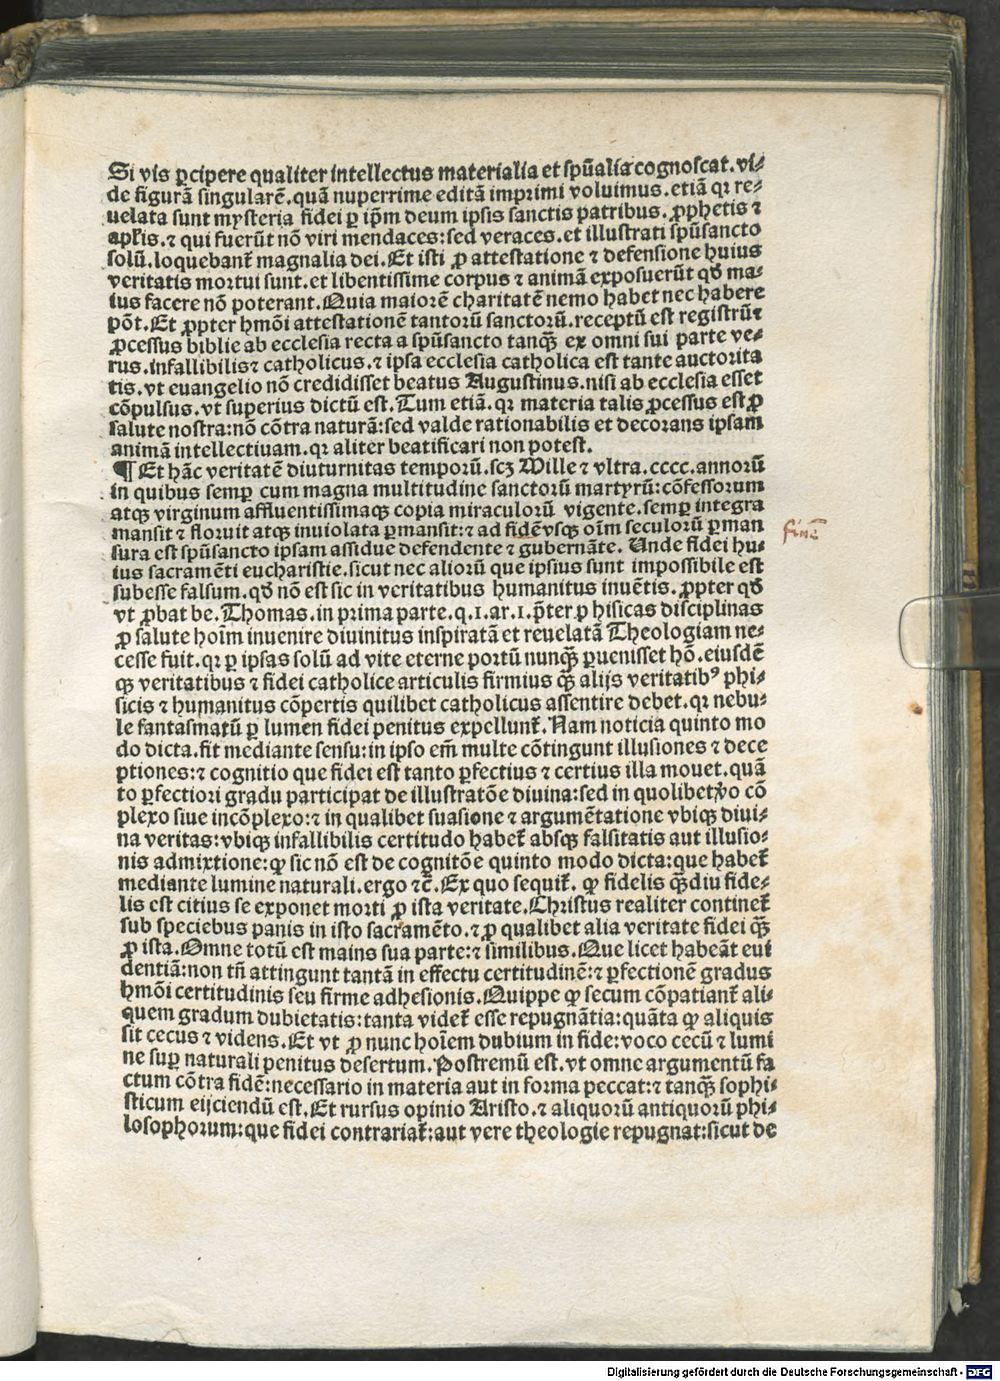 Si vis ꝑcipere qualiter intellectus materialia et spũalia cognoscat. vi⸗
de figurã singularẽ. quã nuperrime editã imprimi voluimus. etiã qꝛ re⸗
uelata sunt mysteria fidei ꝑ ip̃m deum ipsis sanctis patribus. ꝓphetis ⁊
apl̃is. ⁊ qui fuerũt nõ viri mendaces: sed veraces. et illustrati spũsancto
solũ. loquebant̃ magnalia dei. Et isti ꝓ attestatione ⁊ defensione huius
veritatis mortui sunt. et libentissime corpus ⁊ animã exposuerũt qđ ma⸗
ius facere nõ poterant. Quia maiorẽ charitatẽ nemo habet nec habere
põt. Et ꝓpter hmõi attestationẽ tantorũ sanctorũ. receptũ est registrũ ⁊
ꝓcessus biblie ab ecclesia recta a spũsancto tanqꝫ̃ ex omni sui parte ve⸗
rus. infallibilis ⁊ catholicus. ⁊ ipsa ecclesia catholica est tante auctorita
tis. vt euangelio nõ credidisset beatus Augustinus. nisi ab ecclesia esset
cõpulsus. vt superius dictũ est. Tum etiã. qꝛ materia talis ꝓcessus est ꝓ
salute nostra: nõ cõtra naturã: sed valde rationabilis et decorans ipsam
animã intellectiuam. qꝛ aliter beatificari non potest.
¶ Et hãc veritatẽ diuturnitas temporũ. scꝫ Mille ⁊ vltra. cccc. annorũ
in quibus semꝑ cum magna multitudine sanctorũ martyrũ: cõfessorum
atqꝫ virginum affluentissimaqꝫ copia miraculorũ vigente. semꝑ integra
mansit ⁊ floruit atqꝫ inuiolata ꝑmansit: ⁊ ad fidẽ vsqꝫ oĩm seculorũ ꝑman
finẽ
sura est spũsancto ipsam assidue defendente ⁊ gubernãte. Unde fidei hu⸗
ius sacramẽti eucharistie. sicut nec aliorũ que ipsius sunt impossibile est
subesse falsum. qđ nõ est sic in veritatibus humanitus inuẽtis. ꝓpter qđ
vt ꝓbat be. Thomas. in prima parte. q. 1. ar. 1. p̃ter phisicas disciplinas
ꝓ salute hoĩm inuenire diuinitus inspiratã et reuelatã Theologiam ne⸗
cesse fuit. qꝛ ꝑ ipsas solũ ad vite eterne portũ nunqꝫ̃ ꝑuenisset hõ. eiusdẽ
qꝫ veritatibus ⁊ fidei catholice articulis firmius qꝫ̃ alijs veritatibꝰ phi⸗
sicis ⁊ humanitus cõpertis quilibet catholicus assentire debet. qꝛ nebu⸗
le fantasmatũ ꝑ lumen fidei penitus expellunt̃. Nam noticia quinto mo
do dicta. fit mediante sensu: in ipso em̃ multe cõtingunt illusiones ⁊ dece
ptiones: ⁊ cognitio que fidei est tanto ꝑfectius ⁊ certius illa mouet. quã
to ꝑfectiori gradu participat de illustratõe diuina: sed in quolibet ꝟo cõ
plexo siue incõplexo: ⁊ in qualibet suasione ⁊ argumẽtatione vbiqꝫ diui⸗
na veritas: vbiqꝫ infallibilis certitudo habet̃ absqꝫ falsitatis aut illusio⸗
nis admixtione: ꝙ sic nõ est de cognitõe quinto modo dicta: que habet̃
mediante lumine naturali. ergo ⁊c̃. Ex quo sequit̃. ꝙ fidelis qꝫ̃diu fide⸗
lis est citius se exponet morti ꝓ ista veritate. Christus realiter continet̃
sub speciebus panis in isto sacramẽto. ⁊ ꝓ qualibet alia veritate fidei qꝫ̃
ꝓ ista. Omne totũ est mains sua parte: ⁊ similibus. Que licet habeãt eui
dentiã: non tñ attingunt tantã in effectu certitudinẽ: ⁊ ꝑfectionẽ gradus
hmõi certitudinis seu firme adhesionis. Quippe ꝙ secum cõpatiant̃ ali⸗
quem gradum dubietatis: tanta videt̃ esse repugnãtia: quãta ꝙ aliquis
sit cecus ⁊ videns. Et vt ꝓ nunc hoĩem dubium in fide: voco cecũ ⁊ lumi
ne suꝑ naturali penitus desertum. Postremũ est. vt omne argumentũ fa
ctum cõtra fidẽ: necessario in materia aut in forma peccat: ⁊ tanqꝫ̃ sophi⸗
sticum eijciendũ est. Et rursus opinio Aristo. ⁊ aliquorũ antiquorũ phi⸗
losophorum: que fidei contrariat̃: aut vere theologie repugnat: sicut de
Digitalisierung gefördert durch die Deutsche Forschungsgemeinschaft - DFG